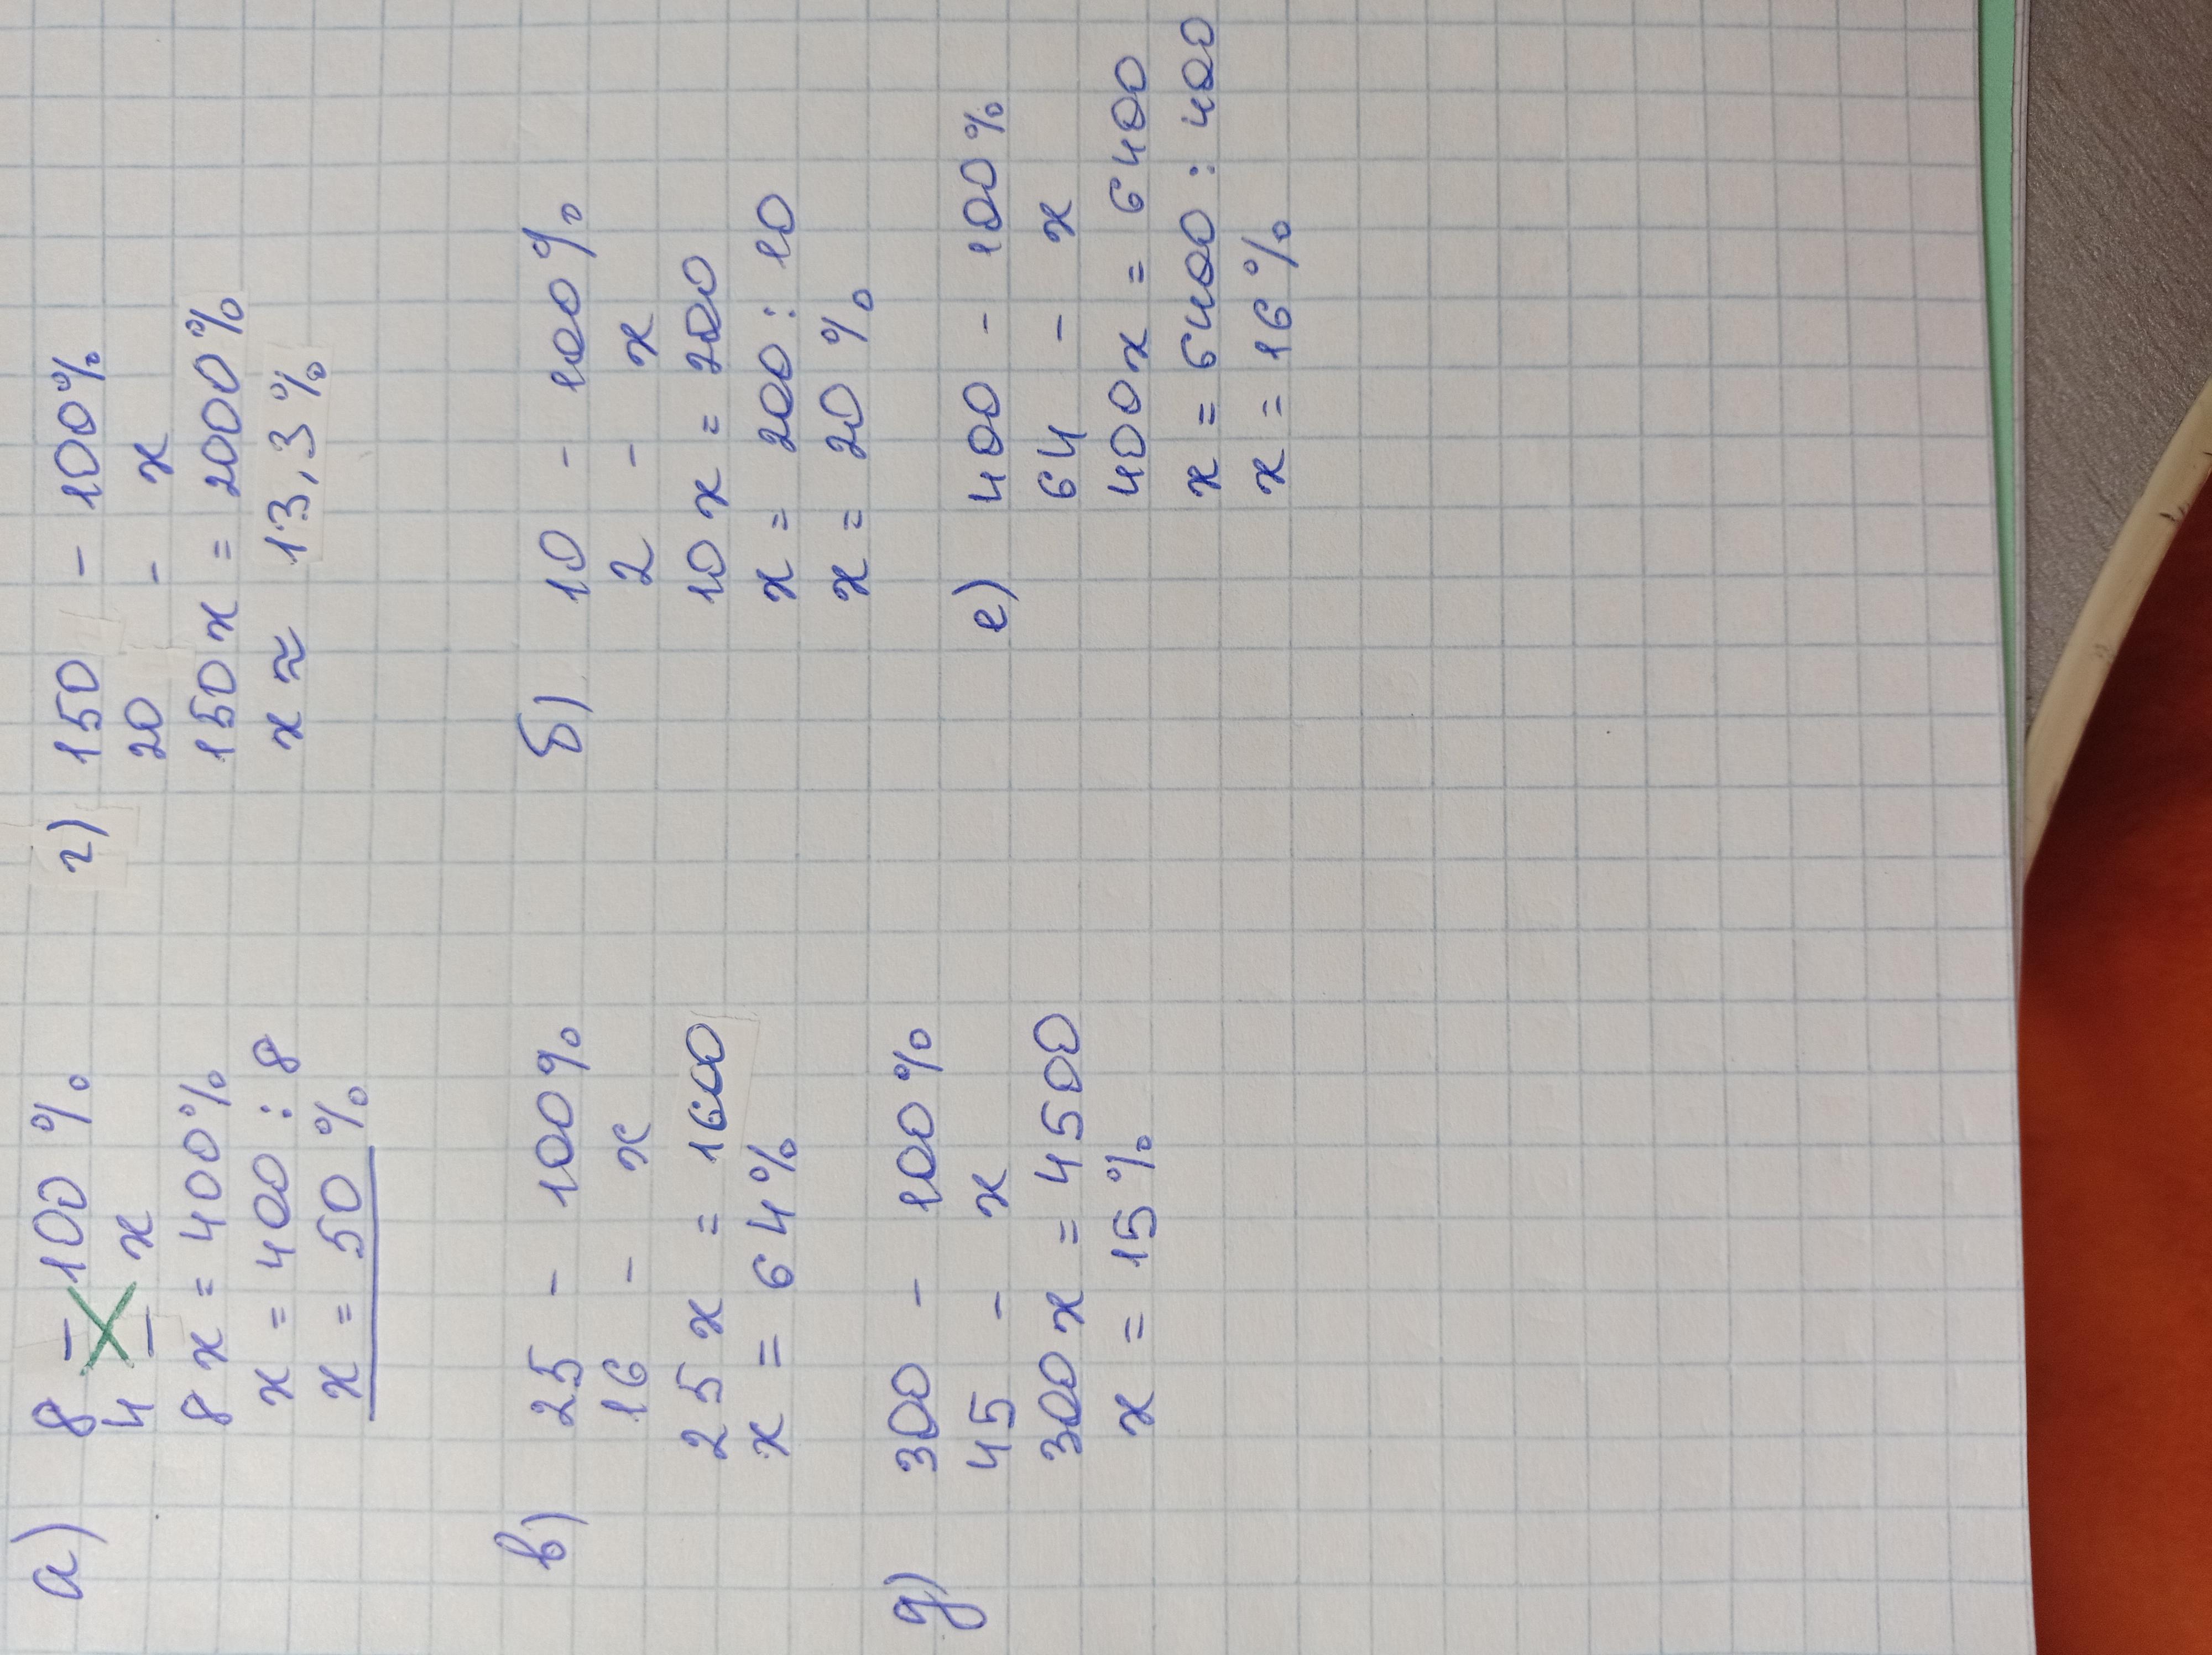 а) 8 – 100 %
4 – x
8x = 400%
x = 400 : 8
x = 50 %
г) 150 – 100%
20 – x
150x = 2000%
x ≈ 13,3 %
в) 25 – 100%
16 – x
25x = 1600
x = 64%
б) 10 – 100%
2 – x
10x = 200
x = 200 : 10
x = 20 %
д) 300 – 100%
45 – x
300x = 4500
x = 15 %
е) 400 – 100%
64 – x
400x = 6400
x = 6400 : 400
x = 16 %